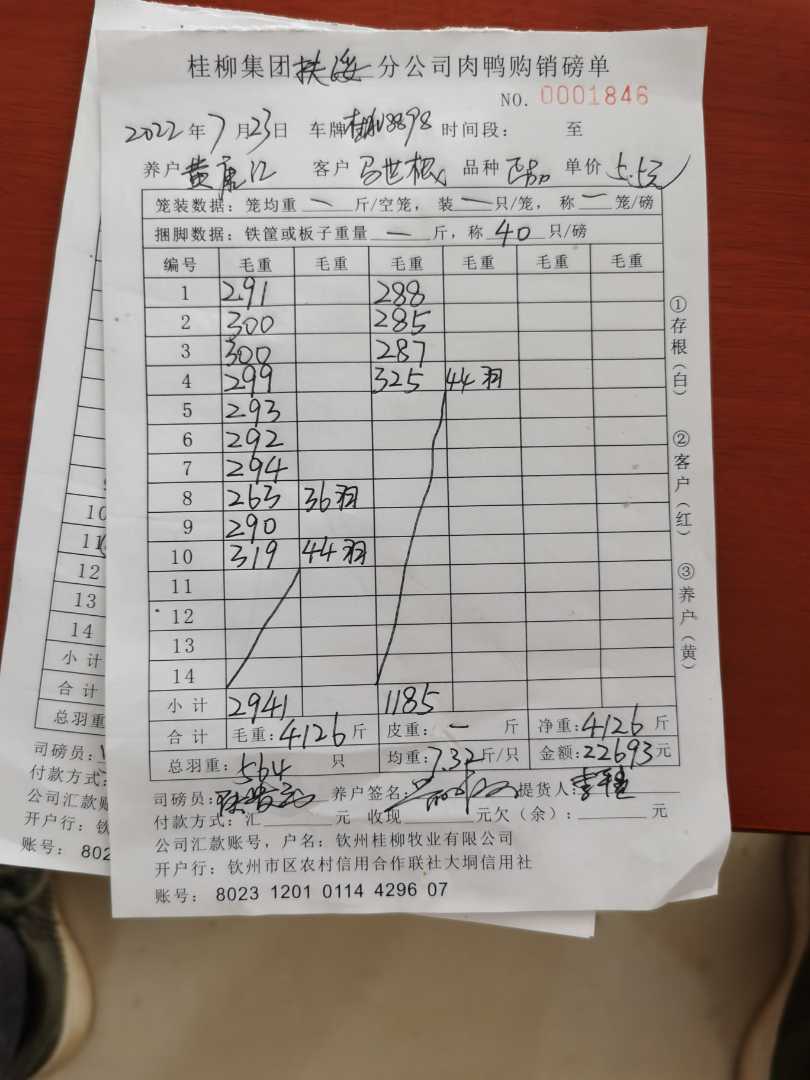 桂柳集团扶绥分公司肉鸭购销磅单
NO. 0001846
2022年7月23日 车牌桂 8898 时间段： 至
养户 黄 江 客户 马世根 品种 单价 5.5元
笼装数据：笼均重 一 斤/空笼，装 一 只/笼，称 一 笼/磅
捆脚数据：铁筐或板子重量 一 斤，称 40 只/磅
编号 毛重 毛重 毛重 毛重 毛重 毛重
1 291 288
2 300 285
3 300 287
4 299 325 44羽
5 293
6 292
7 294
8 263 36羽
9 290
10 319 44羽
11
12
13
14
小计 2941 1185
合计 毛重：4126斤 皮重：一 斤 净重：4126斤
总羽重：564 只 均重：7.32斤/只 金额：22693元
司磅员： 养户签名： 提货人：
付款方式：汇 元 收现 元欠（余）： 元
公司汇款账号，户名：钦州桂柳牧业有限公司
开户行：钦州市区农村信用合作联社大垌信用社
账号： 8023 1201 0114 4296 07
①存根（白）
②客户（红）
③养户（黄）
10
11
12
13
14
小计
合计
总羽重
司磅员：
付款方式：
公司汇款账
开户行：钦
账号： 802